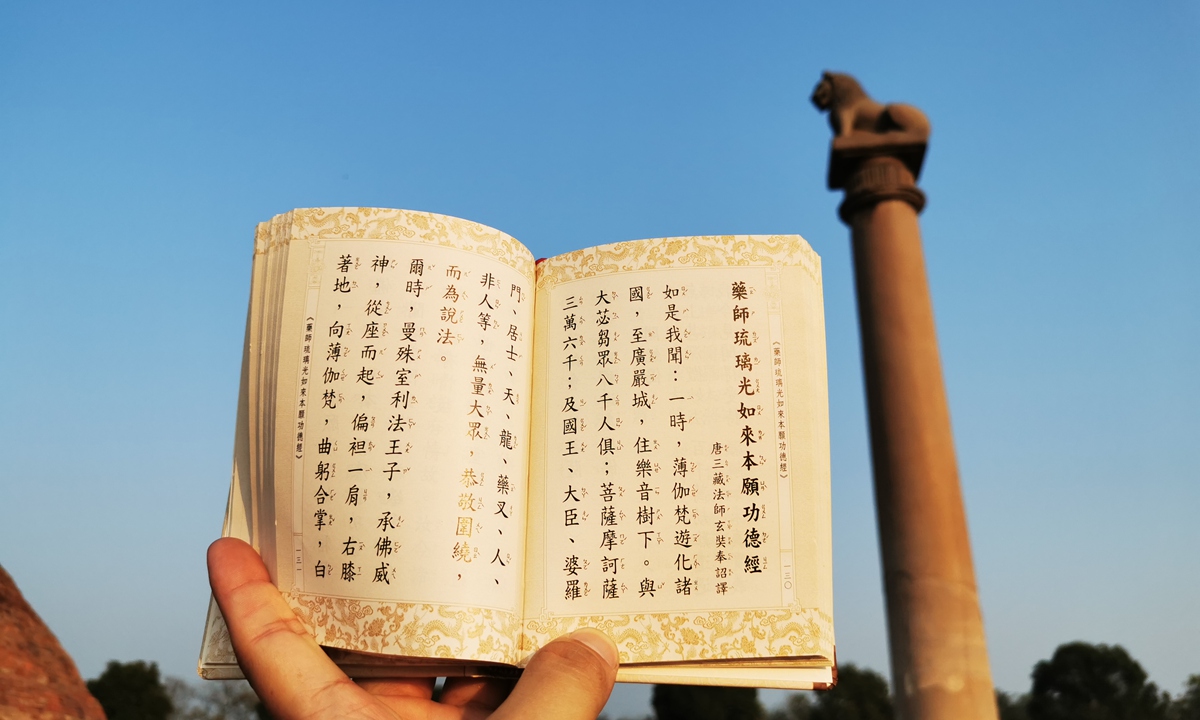 《藥師琉璃光如來本願功德經》
一三〇
藥師琉璃光如來本願功德經
唐三藏法師玄奘奉詔譯
如是我聞：一時，薄伽梵遊化諸
國，至廣嚴城，住樂音樹下。與
大苾芻眾八千人俱；菩薩摩訶薩
三萬六千；及國王、大臣、婆羅
門、居士、天、龍、藥叉、人、
非人等，無量大眾，恭敬圍繞，
而為說法。
爾時，曼殊室利法王子，承佛威
神，從座而起，偏袒一肩，右膝
著地，向薄伽梵，曲躬合掌，白
《藥師琉璃光如來本願功德經》
一三一